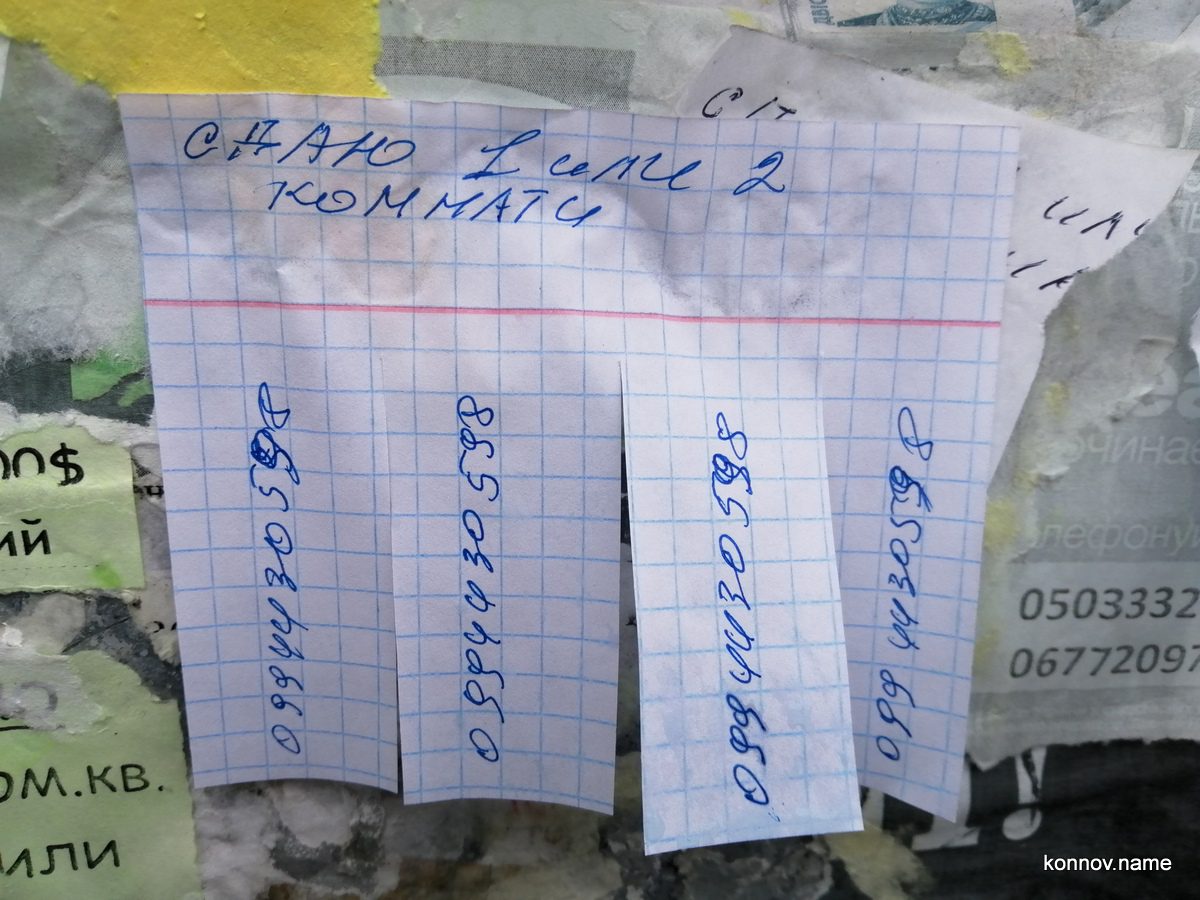 СДАЮ 1 или 2
КОММАТИ
0994430598
0994430598
0994430598
0994430598
00$
ий
ОМ.КВ.
или
0503332
06772097
konnov.name